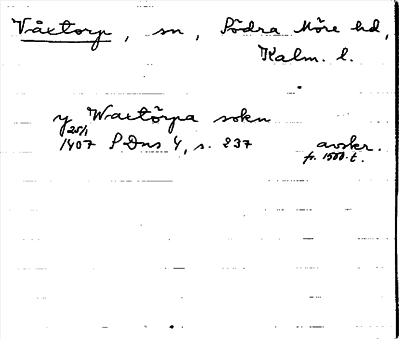 Växtorp, sn, Södra Möre hd,
Kalm. l.
y Waxtörpa sokn
25/1
1407 SDns 4, s. 237 avskr.
fr. 1500-t.